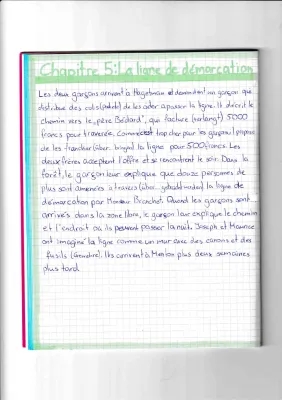 Chapitre 5: La ligne de démarcation
Les deux garçons arrivent à Hagetman et demandent un garçon que
distribue des colis de les aider a passer la ligne. Il décrit le
chemin vers le père Bédard, qui facture (verlangt) 5000
francs pour traversée. Comme c'est trop cher pour les garçons il propose
de les tranchir (über bringen) la ligne pour 500 francs. Les
deux frères acceptent l'offre et se rencontrent le soir. Dans la
forêt, le garçon leur explique que douze personnes de
plus sont amenées à travers la ligne de
démarcation par Monsieur Branchet. Quand les garçons sont
arrivés dans la zone libre, le garçon leur explique le chemin
et l'endroit où ils peuvent passer la nuit. Joseph et Maurice
ont imaginé la ligne comme un mur avec des canons et des
fusils. Ils arrivent à Menton plus deux semaines
plus tard.